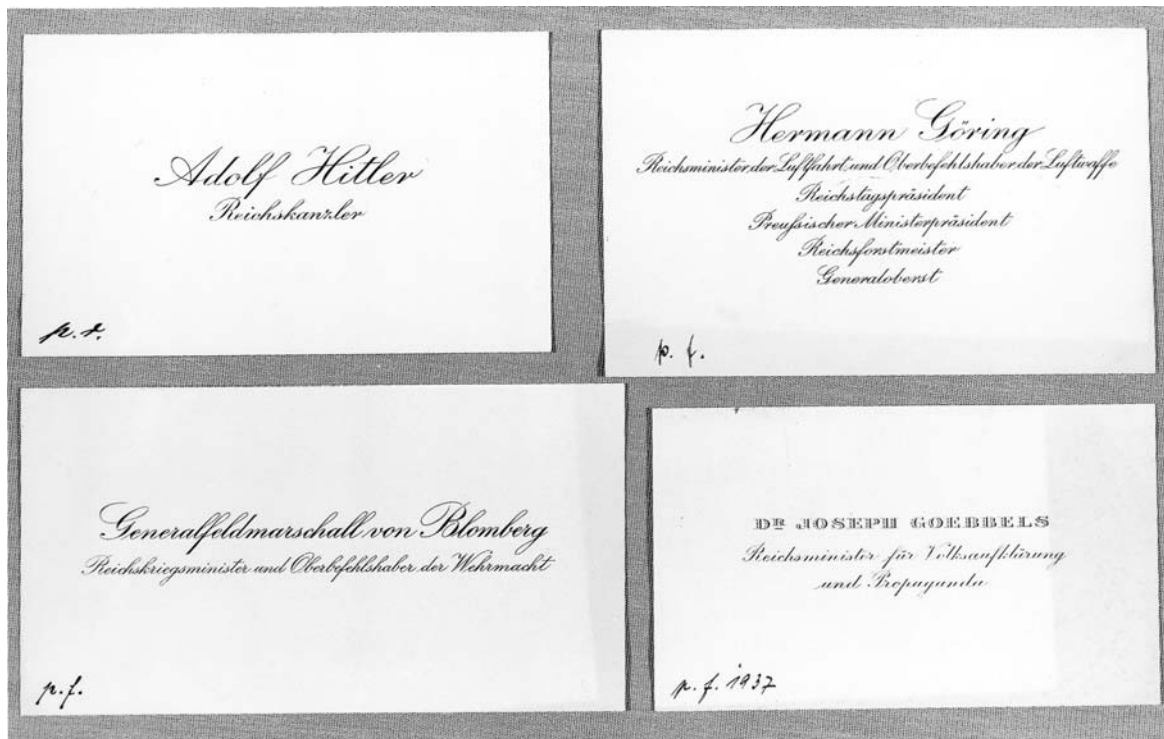 Adolf Hitler
Reichskanzler
p. r.
Hermann Göring
Reichsminister der Luftfahrt und Oberbefehlshaber der Luftwaffe
Reichstagspräsident
Preußischer Ministerpräsident
Reichsforstmeister
Generaloberst
p. f.
Generalfeldmarschall von Blomberg
Reichskriegsminister und Oberbefehlshaber der Wehrmacht
p. f.
DR JOSEPH GOEBBELS
Reichsminister für Volksaufklärung
und Propaganda
p. f. 1937